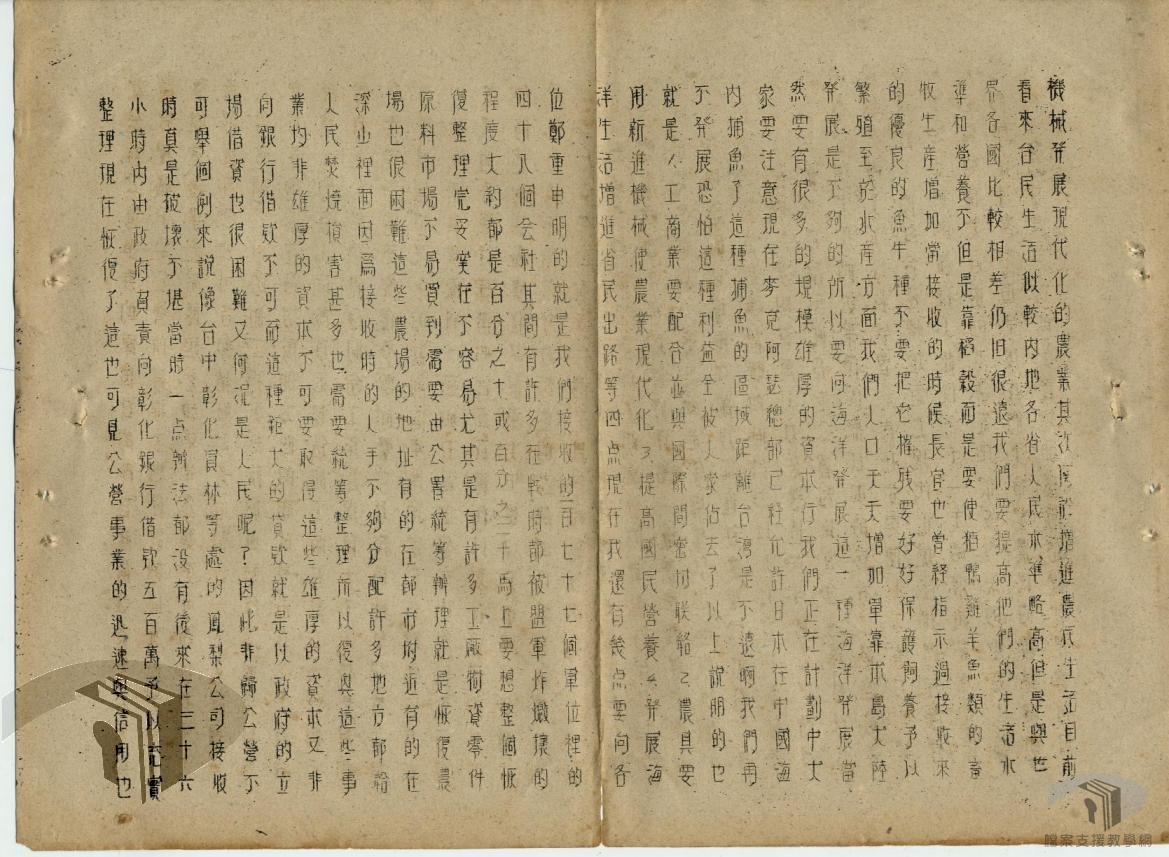 機械發展現代化的農業其次関於增進農民生活目前
看來台民生活似較內地各省人民水準略高但是與世
界各國比較相差仍旧很遠我們要提高他們的生活水
準和營養不但是靠稻穀而是要使猪鴨雞羊魚類的畜
牧生產增加當接收的時候長官也曾経指示過接收來
的優良的魚牛種不要把它摧残要好好保護飼養予以
繁殖至於水產方面我們人口天天增加單靠本島大陸
發展是不夠的所以要向海洋發展這一種海洋發展當
然要有很多的規模雄厚的資本行我們正在計劃中大
家要注意現在麥克阿瑟總部已社允許日本在中國海
內捕魚了這種捕魚的區域距離台湾是不遠啊我們再
不發展恐怕這種利益全被人家佔去了以上說明的也
就是1.工商業要配合並與國際間密切联絡2.農具要
用新進機械使農業現代化3.提高國民營養4.發展海
洋生活增進省民出路等四点現在我還有幾点要向各
位鄭重申明的就是我們接收的一百七十七個單位裡的
四十八個会社其間有許多在戰時都被盟軍炸燬壞的
程度大約都是百分之十或百分之二十馬上要想整個恢
復整理完妥實在不容易尤其是有許多工廠物資零件
原料市場不易買到需要由公署統籌辦理就是恢復農
場也很困難這些農場的地址有的在都市附近有的在
深山裡面因為接收時的人手不夠分配許多地方都給
人民焚燒損害甚多也需要統籌整理所以復興這些事
業均非雄厚的資本不可要取得這些雄厚的資本又非
向銀行借欵不可而這種鉅大的貸欵就是以政府的立
場借資也很困難又何況是人民呢?因此非歸公營不
可舉個例來說像台中彰化員林等處的鳳梨公司接收
時真是破壞不堪當時一点辦法都沒有後來在三十六
小時內由政府負責向彰化銀行借欵五百萬予以充實
整理現在恢復了這也可見公營事業的迅速與信用也
檔案支援教學網